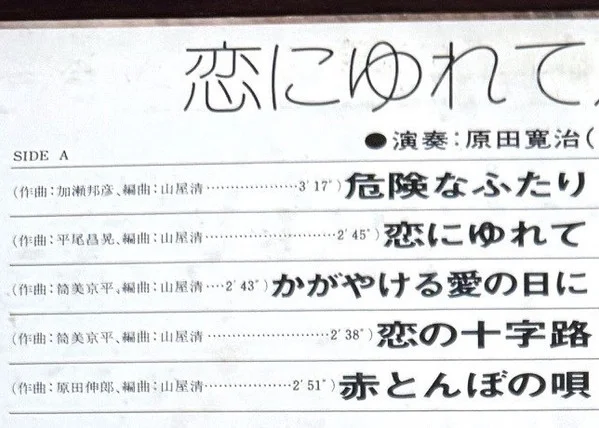 恋にゆれて
●演奏:原田寛治(
SIDE A
(作曲:加瀬邦彦、編曲:山屋清…………………3′17″)危険なふたり
(作曲:平尾昌晃、編曲:山屋清……………………2′45″)恋にゆれて
(作曲:筒美京平、編曲:山屋清……2′43″)かがやける愛の日に
(作曲:筒美京平、編曲:山屋清……………………2′38″)恋の十字路
(作曲:原田伸郎、編曲:山屋清………………2′51″)赤とんぼの唄